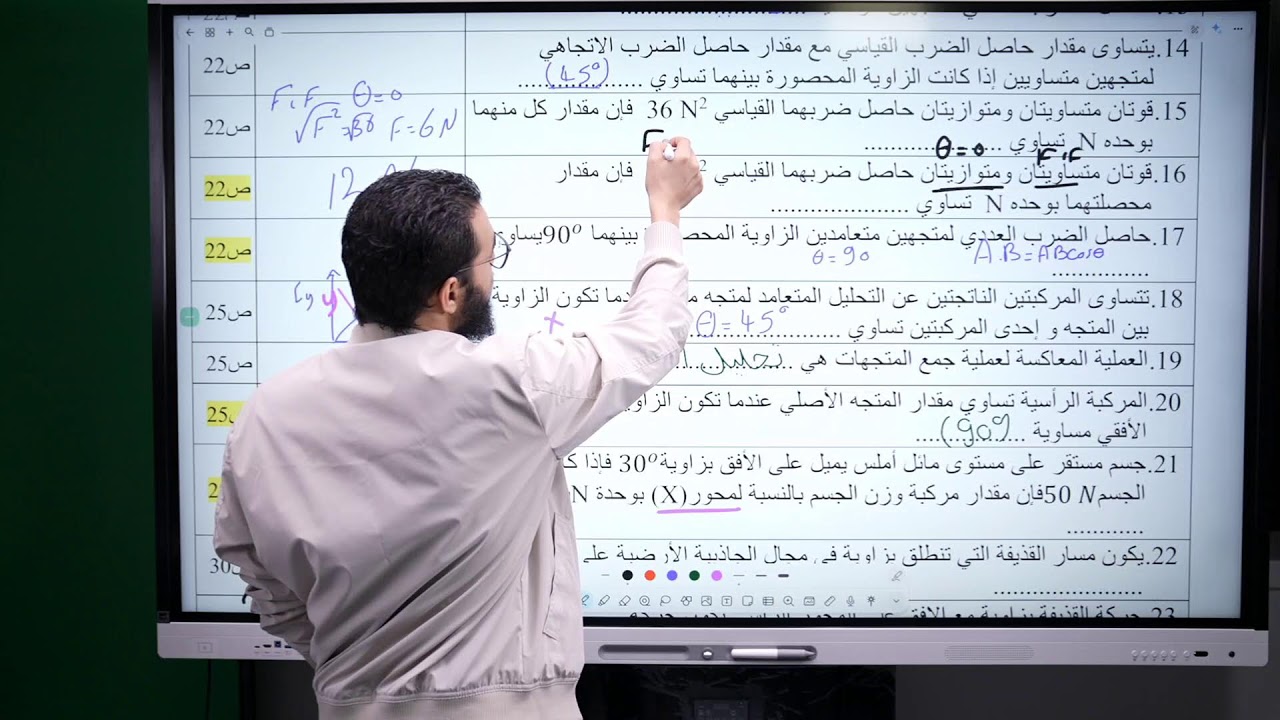 14.يتساوى مقدار حاصل الضرب القياسي مع مقدار حاصل الضرب الاتجاهي
لمتجهين متساويين إذا كانت الزاوية المحصورة بينهما تساوي (45°)
ص22
15.قوتان متساويتان ومتوازيتان حاصل ضربهما القياسي 36 N² فإن مقدار كل منهما
بوحده N تساوي ....................
F، F θ=0
√F² = √36 F=6N
ص22
θ=0 F، F
16.قوتان متساويتان ومتوازيتان حاصل ضربهما القياسي ² فإن مقدار
محصلتهما بوحده N تساوي ....................
12
ص22
17.حاصل الضرب العددي لمتجهين متعامدين الزاوية بينهما 90°يساوي
θ=90 A.B=ABcosθ
ص22
18.تتساوى المركبتين الناتجتين عن التحليل المتعامد لمتجه تكون الزاوية
بين المتجه و إحدى المركبتين تساوي θ=45°
ص25
19.العملية المعاكسة لعملية جمع المتجهات هي تحليل
ص25
20.المركبة الرأسية تساوي مقدار المتجه الأصلي عندما تكون
الأفقي مساوية (90°)
ص25
21.جسم مستقر على مستوى مائل أملس يميل على الأفق بزاوية 30° فإذا
الجسم 50 N فإن مقدار مركبة وزن الجسم بالنسبة لمحور(X) بوحدة N
22.يكون مسار القذيفة التي تنطلق بزاوية في مجال الجاذبية الأرضية على
30
23.حركة القذيفة بزاوية مع الأفق على المحور